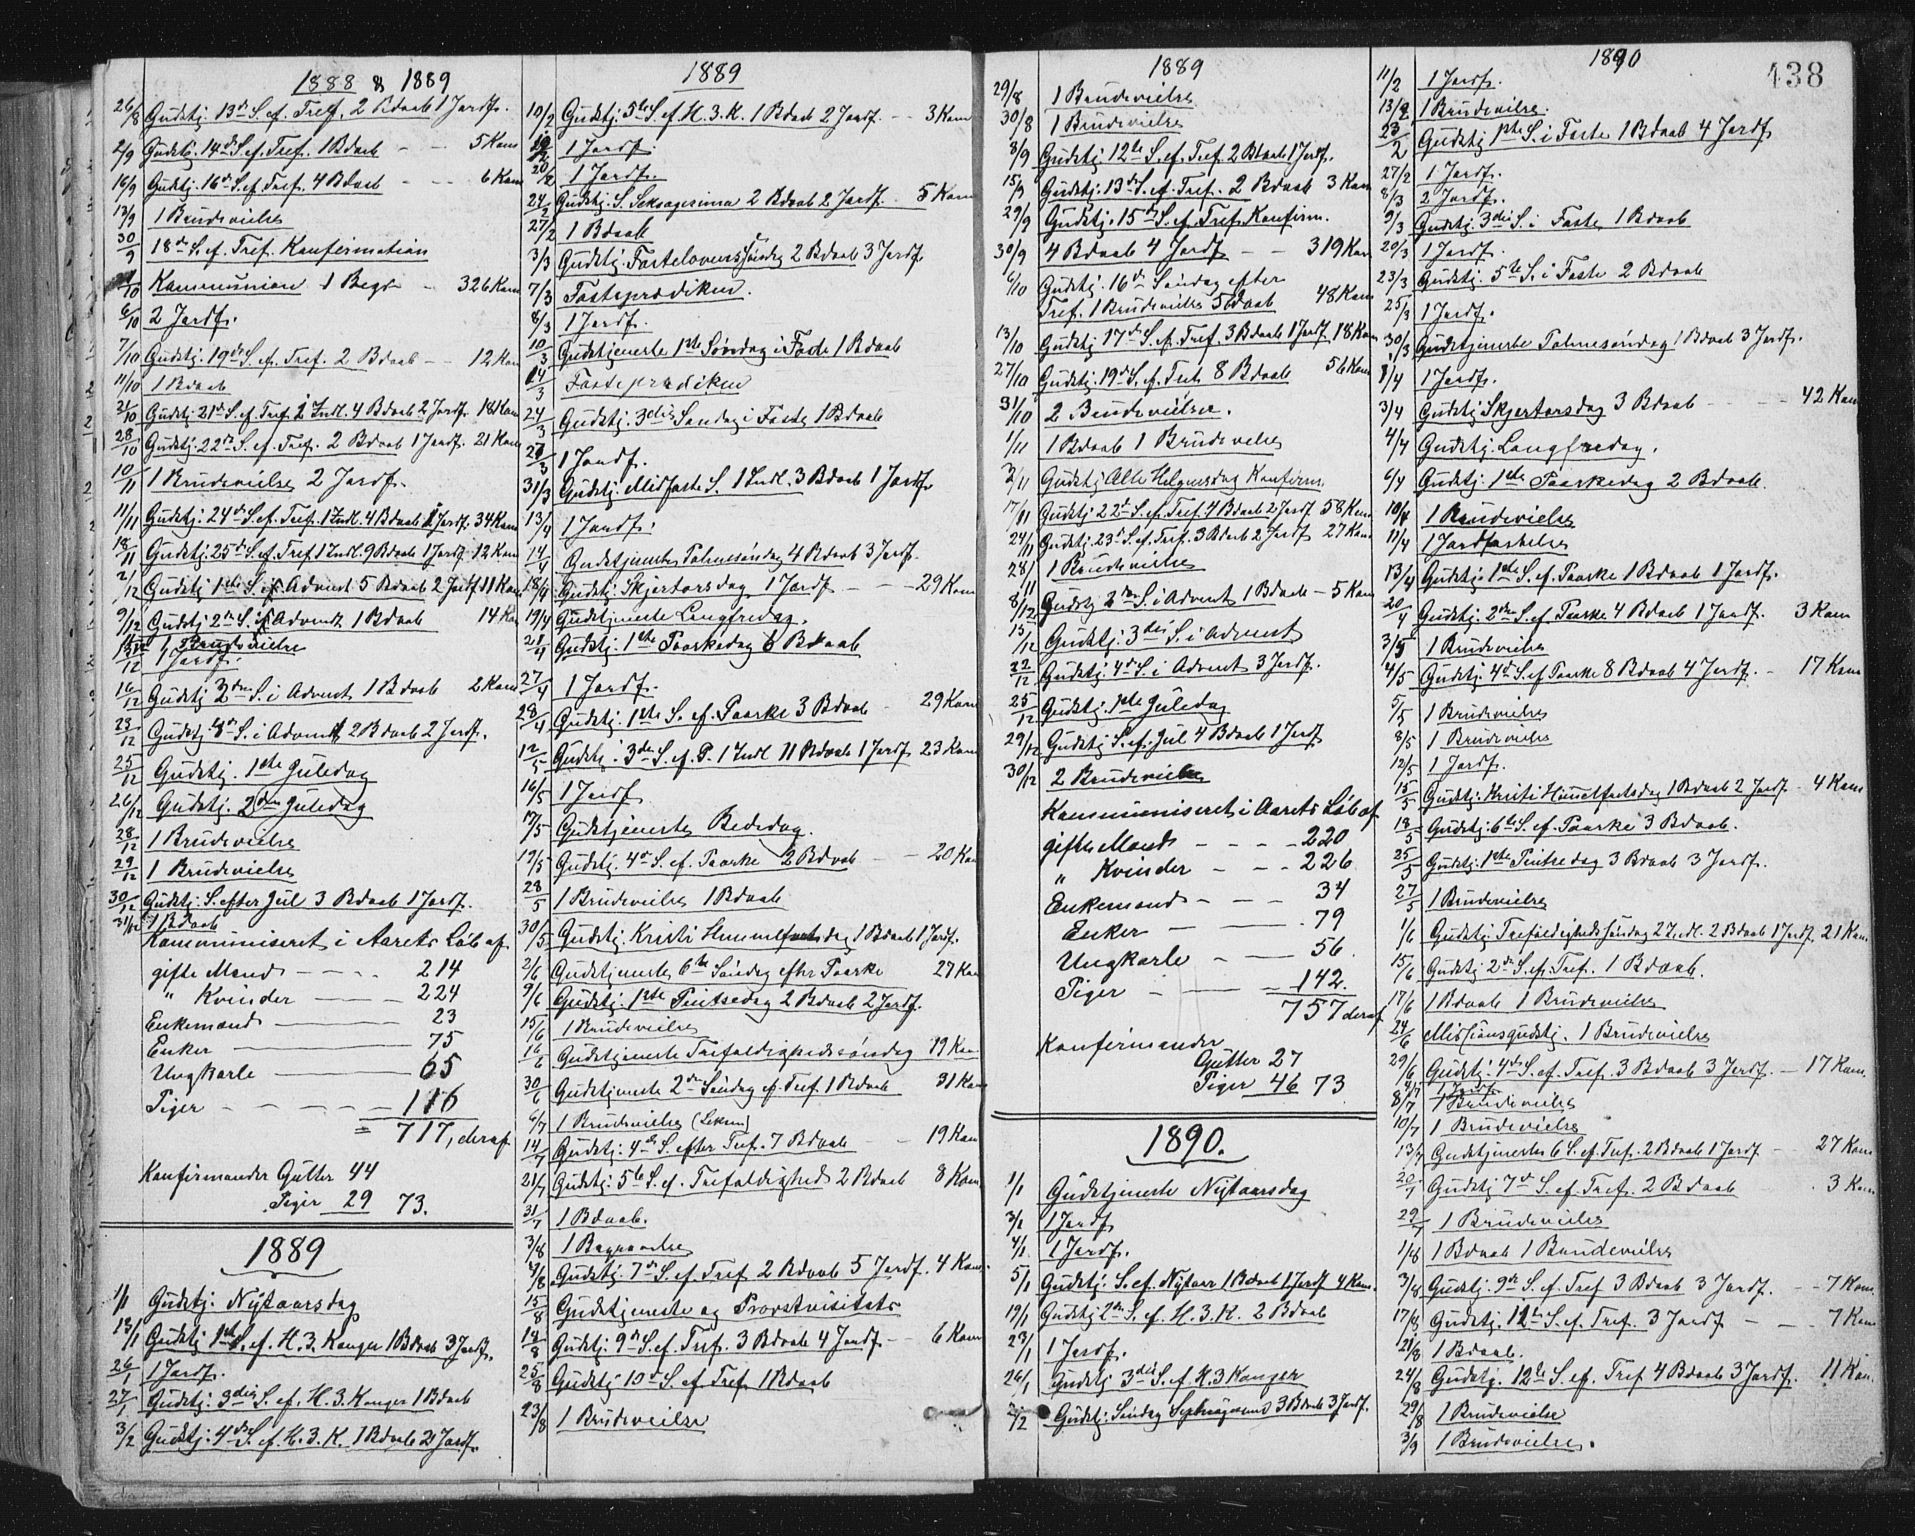 1888 & 1889
26/8 Gudstj. 13de S. ef. Tref. 2 Bdaab 1 Jordf.
2/9 Gudstj. 14de S. ef. Tref. 1 Bdaab - - 5 Kom
16/9 Gudstj. 16de S. ef. Tref. 4 Bdaab - - 6 Kom
13/9 1 Brudevielse
30/9 18de S. ef. Tref. Konfirmation
/10 Kommunion 1 Begr - 326 Kom
6/10 2 Jordf.
7/10 Gudstj. 19de S. ef. Tref. 2 Bdaab - 12 Kom
11/10 1 Bdaab
21/10 Gudstj. 21de S. ef. Tref. 1 Indl. 4 Bdaab 2 Jordf. 18 Kom
28/10 Gudstj. 22de S. ef. Tref. 2 Bdaab 1 Jordf. 21 Kom
10/11 1 Brudevielse 2 Jordf.
11/11 Gudstj. 24de S. ef. Tref. 1 Indl. 4 Bdaab 1 Jordf. 34 Kom
18/11 Gudstj. 25de S. ef. Tref 1 Indl. 9 Bdaab 1 Jordf. 12 Kom
2/12 Gudstj 1ste S. i Advent 5 Bdaab 2 Jordf 11 Kom
9/12 Gudstj 2de S. i Advent 1 Bdaab 14 Kom
1 Brudevielse
/12 1 Jordf.
16/12 Gudstj 3die S. i Advent 1 Bdaab 2 Kom
23/12 Gudstj 4de S. i Advent 2 Bdaab 2 Jordf.
25/12 Gudstj. 1ste Juledag
26/12 Gudstj. 2den Juledag
28/12 1 Brudevielse
29/12 1 Brudevielse
30/12 Gudstj. S. efter Jul 3 Bdaab 1 Jordf.
31/12 1 Bdaab
Kommuniseret i Aarets Løb af
gifte Mænd - - - 214
" Kvinder - - 224
Enkemænd - 23
Enker - 75
Ungkarle - 65
Piger - - - - 116
= 717, deraf
Konfirmander Gutter 44
Piger 29 73.
1889
1/1 Gudstj. Nytaarsdag
13/1 Gudstj 1ste S. ef. H. 3. Konger 1 Bdaab 3 Jordf.
26/1 1 Jordf.
27/1 Gudstj. 3die S. ef. H. 3. Konger 1 Bdaab
3/2 Gudstj. 4de S. ef. H. 3. K. 1 Bdaab 2 Jordf.
1889
10/2 Gudstj. 5te S. ef. H. 3. K. 1 Bdaab 2 Jordf. - 3 Kom
/2 1 Jordf.
20/2 1 Jordf.
24/2 Gudstj. S. Seksagesima 2 Bdaab 2 Jordf. - 5 Kom
27/2 1 Bdaab
3/3 Gudstj. Fastelovenssøndag 2 Bdaab 3 Jordf.
7/3 Fasteprædiken.
8/3 1 Jordf.
10/3 Gudstjeneste 1ste Søndag i Faste 1 Bdaab
14/3 Fasteprædiken
24/3 Gudstj. 3die Søndag i Faste 1 Bdaab
27/3 1 Jordf.
31/3 Gudstj. Midfaste S. 1 Indl. 3 Bdaab 1 Jordf.
13/4 1 Jordf.
14/4 Gudstjeneste Palmesøndag 4 Bdaab 3 Jordf.
18/4 Gudstj. Skjertorsdag 1 Jordf - - 29 Kom
19/4 Gudstjeneste Langfredag.
21/4 Gudstj. 1ste Paaskedag 6 Bdaab
27/4 1 Jordf.
28/4 Gudstj. 1ste S. ef. Paaske 3 Bdaab - 29 Kom
12/5 Gudstj. 3die S. ef. P. 1 Indl 11 Bdaab 1 Jordf. 23 Kom
16/5 1 Jordf
17/5 Gudstjeneste Bededag.
19/5 Gudstj. 4de S. ef. Paaske 2 Bdaab - - 20 Kom
28/5 1 Brudevielse 1 Bdaab
30/5 Gudstj. Kristi Himmelfartsdag 1 Bdaab 1 Jordf.
2/6 Gudstjeneste 6te Søndag efter Paaske 27 Kom
9/6 Gudstj. 1ste Pintsedag 2 Bdaab 2 Jordf.
15/6 1 Brudevielse
16/6 Gudstjeneste Trefoldighedssøndag 19 Kom
30/6 Gudstjeneste 2den Søndag ef. Tref. 1 Bdaab 31 Kom
6/7 1 Brudevielse (Leksen)
14/7 Gudstj. 4de S. efter Tref. 7 Bdaab - 19 Kom
21/7 Gudstj. 5te S. ef. Trefoldighed 2 Bdaab 8 Kom
31/7 1 Bdaab.
3/8 1 Begravelse
4/8 Gudstj. 7de S. ef. Tref 2 Bdaab 5 Jordf. 4 Kom.
15/8 Gudstjeneste og Provstvisitats
18/8 Gudstj. 9de S. ef. Tref. 3 Bdaab 4 Jordf - 6 Kom
25/8 Gudstj 10de S. ef Tref 1 Bdaab
23/8 1 Brudevielse
1889
29/8 1 Brudevielse
30/8 1 Brudevielse
8/9 Gudstj. 12te S. ef. Tref. 2 Bdaab 1 Jordf.
15/9 Gudstj. 13de S. ef Tref. 2 Bdaab 3 Kom
29/9 Gudstj. 15de S. ef. Tref. Konfirm.
30/9 4 Bdaab 4 Jordf - - 319 Kom
6/10 Gudstj. 16de Søndag efter
Tref. 1 Brudevielse 5 Bdaab 48 Kom
13/10 Gudstj. 17de S. ef. Tref 3 Bdaab 1 Jordf 18 Kom
27/10 Gudstj. 19de S. ef. Tref. 8 Bdaab 56 Kom
31/10 2 Brudevielser.
1/11 1 Bdaab 1 Brudevielse
3/11 Gudstj Alle Helgensdag Konfirm.
17/11 Gudstj 22de S. ef. Tref. 4 Bdaab 2 Jordf 58 Kom
24/11 Gudstj. 23de S. ef. Tref. 3 Bdaab 2 Jordf 27 Kom
28/11 1 Brudevielse
8/12 Gudstj 2den S. i Advent 1 Bdaab - 5 Kom
15/12 Gudstj. 3die S. i Advent
22/12 Gudstj. 4de S. i Advent 3 Jordf.
25/12 Gudstj. 1ste Juledag
29/12 Gudstj S. ef. Jul 4 Bdaab 1 Jordf
30/12 2 Brudevielse
Kommuniseret i Aarets Løb af
gifte Mænd - - - - 220
" Kvinder - - - 226
Enkemænd - - - 34
Enker - 79
Ungkarle - - 56.
Piger - - - 142.
757 deraf
Konfirmander
Gutter 27
Piger 46 73
1890.
1/1 Gudstjeneste Nytaarsdag
3/1 1 Jordf
4/1 1 Jordf.
5/1 Gudstj. S. ef. Nytaar 1 Bdaab 1 Jordf 4 Kom.
19/1 Gudstj 2den S. ef. H. 3. K. 2 Bdaab
23/1 1 Jordf.
26/1 Gudstj 3die S. ef. H. 3 Konger
2/2 Gudstj. Søndag 3 Bdaab 3 Jordf.
1890
138
11/2 1 Jordf.
13/2 1 Brudevielse.
23/2 Gudstj 1ste S. i Faste 1 Bdaab 4 Jordf
27/2 1 Jordf.
8/3 2 Jordf.
9/3 Gudstj. 3die S. i Faste 1 Bdaab
20/3 1 Jordf.
23/3 Gudstj. 5te S. i Faste 2 Bdaab
25/3 1 Jordf.
30/3 Gudstjeneste Palmesøndag 1 Bdaab 3 Jordf.
1/4 1 Jordf.
3/4 Gudstj Skjertorsdag 3 Bdaab - - - 42 Kom
4/4 Gudstj. Langfredag.
6/4 Gudstj. 1ste Paaskedag 2 Bdaab.
10/4 1 Brudevielse
11/4 1 Jordfæstelse
13/4 Gudstj. 1ste S. ef. Paaske 1 Bdaab 1 Jordf.
20/4 Gudstj. 2den S. ef. Paaske 4 Bdaab 1 Jordf. 3 Kom
3/5 1 Brudevielse
4/5 Gudstj. 4de S. ef Paaske 8 Bdaab 4 Jordf. - 17 Kom
5/5 1 Brudevielse
8/5 1 Brudevielse
12/5 1 Jordf.
15/5 Gudstj. Kristi Himmelfartsdag 1 Bdaab 2 Jordf - 4 Kom
18/5 Gudstj. 6te S. ef. Paaske 3 Bdaab.
25/5 Gudstj. 1ste Pintsedag 3 Bdaab 3 Jordf.
27/5 1 Brudevielse
1/6 Gudstj Trefoldighedssøndag 2 Indl. 2 Bdaab 1 Jordf. 21 Kom.
15/6 Gudstj 2den S. ef. Tref. 1 Bdaab.
17/6 1 Bdaab 1 Brudevielse
24/6 Missionsgudstj. 1 Brudevielse
29/6 Gudstj. 4de S. ef. Tref. 3 Bdaab 3 Jordf. - 17 Kom.
4/7 1 Jordf
8/7 1 Brudevielse
10/7 1 Brudevielse
13/7 Gudstjeneste 6 S. ef. Tref. 2 Bdaab 1 Jordf - 27 Kom
20/7 Gudstj 7de S. ef. Tref. 2 Bdaab 3 Kom
29/7 1 Brudevielse
1/8 1 Bdaab 1 Brudevielse
3/8 Gudstj. 9de S. ef. Tref 3 Bdaab 3 Jordf. - - 7 Kom.
17/8 Gudstj. 11te S. ef. Tref. 3 Jordf - - 7 Kom
21/8 1 Bdaab.
24/8 Gudstj. 12te S. ef. Tref 4 Bdaab 3 Jordf. 11 Kom.
29/8 1 Brudevielse
3/9 1 Brudevielse.